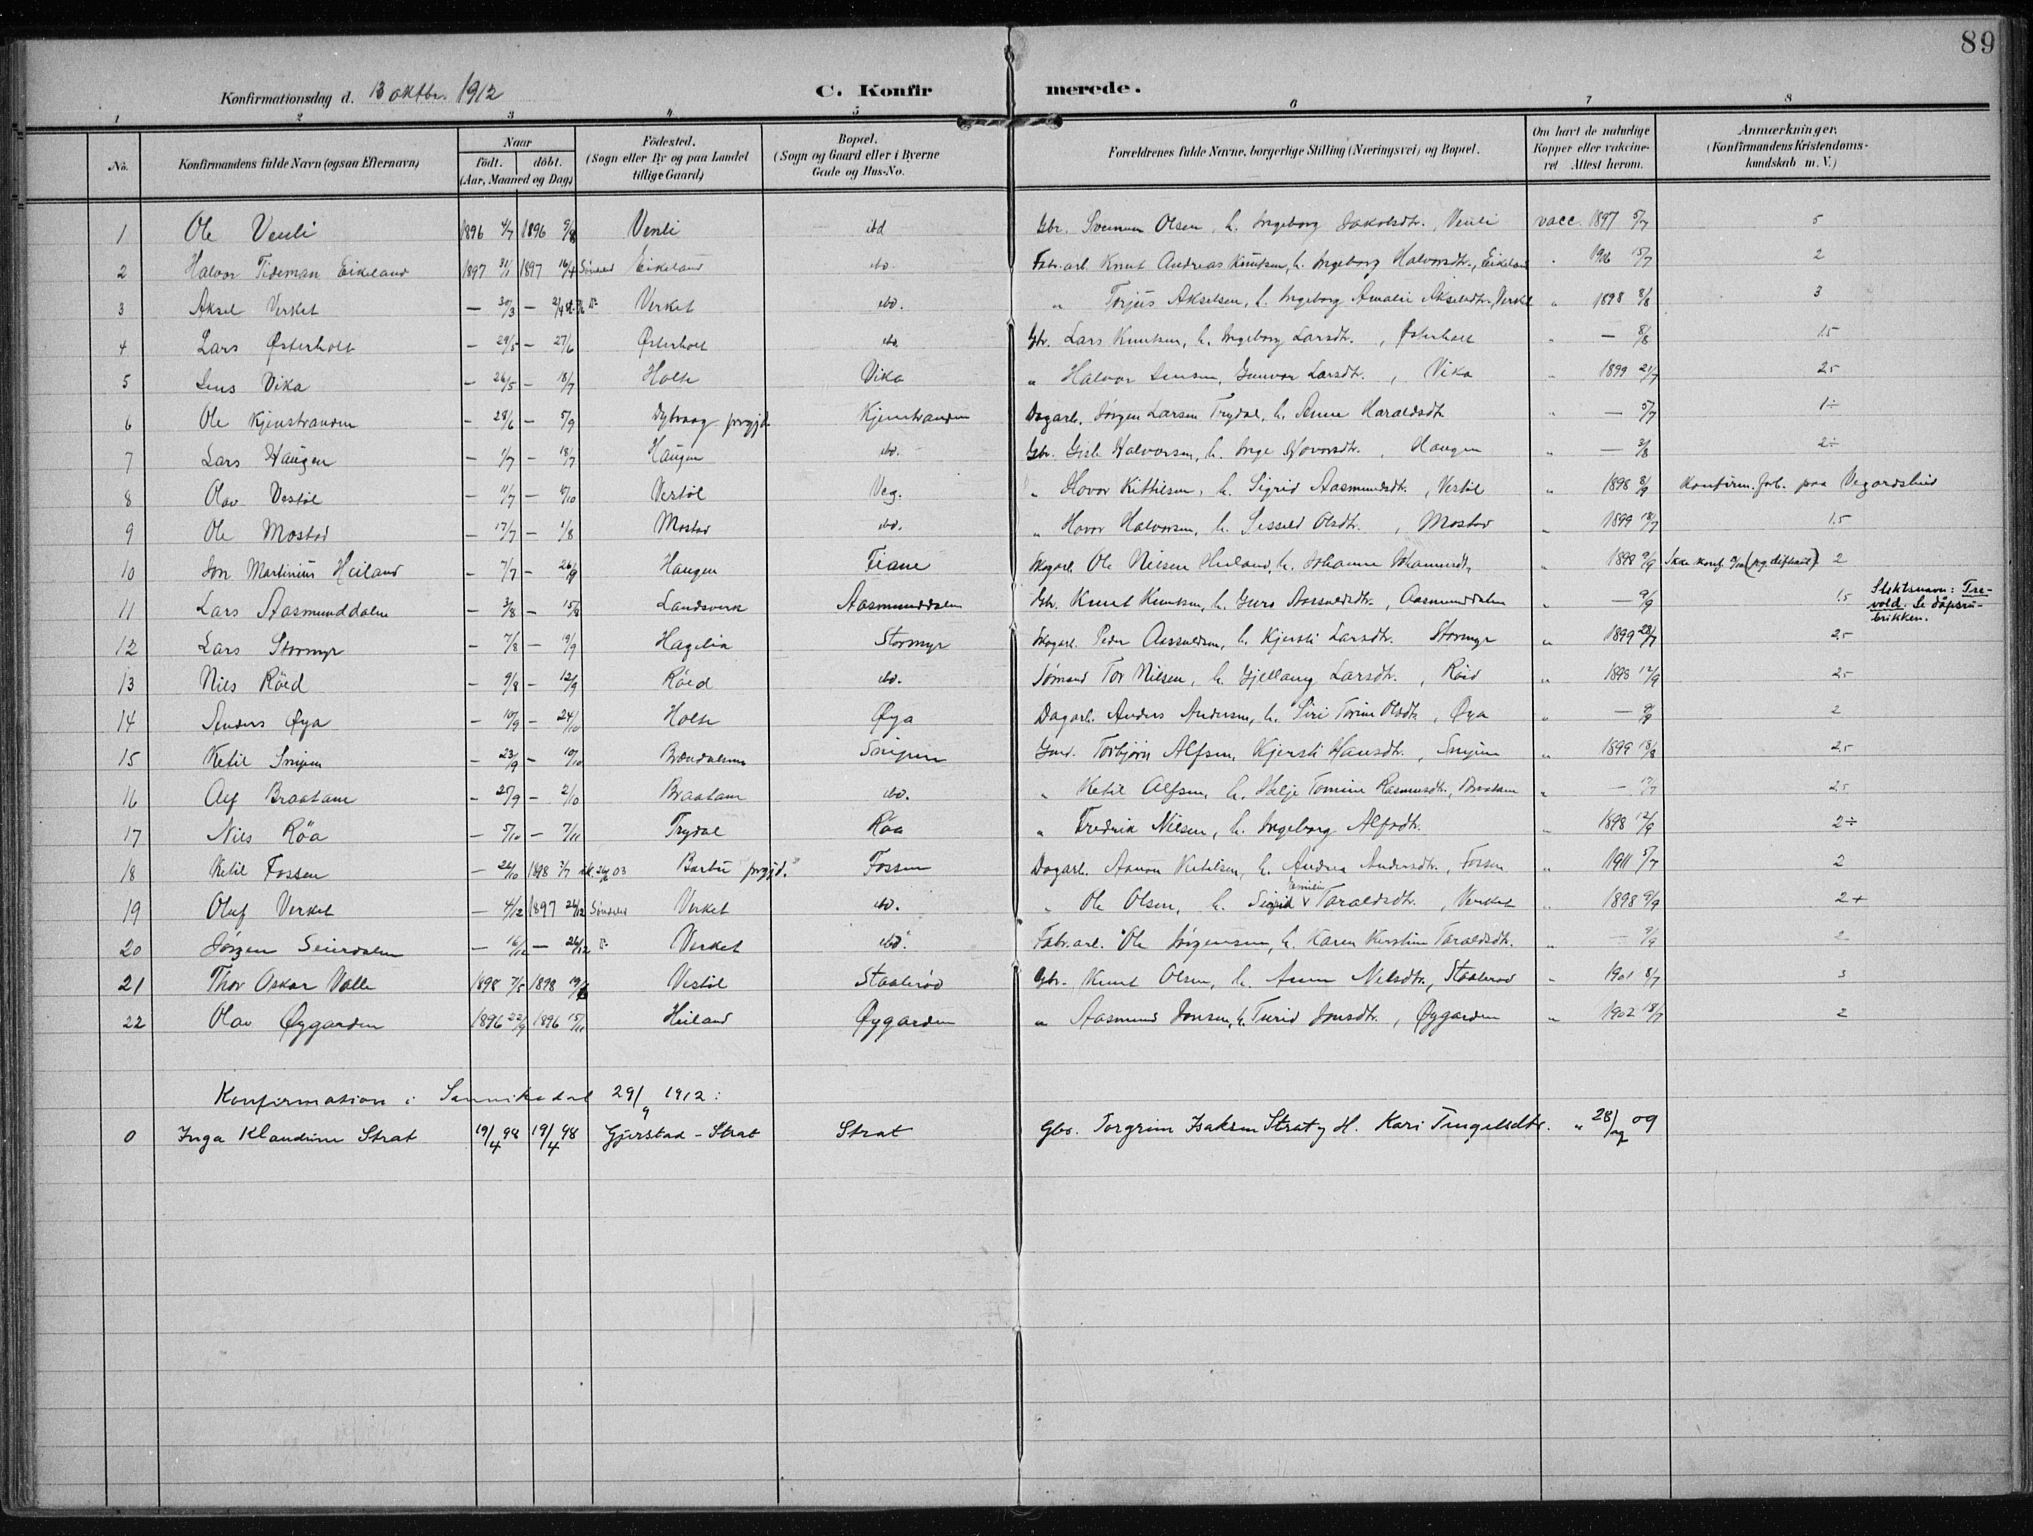 89
Konfirmationsdag d. 13 oktbr. 1912 C. Konfirmerede.
1 2 3 4 5 6 7 8
No. Konfirmandens fulde Navn (ogsaa Efternavn) Naar födt. döbt. (Aar, Maaned og Dag) Födested. (Sogn eller By og paa Landet tillige Gaard) Bopæl. (Sogn og Gaard eller i Byerne Gade og Hus-No. Forældrenes fulde Navne, borgerlige Stilling (Næringsvei) og Bopæl. Om havt de naturlige Kopper eller vaccineret Attest herom. Anmærkninger. (Konfirmandens Kristendomskundskab m. V.)
1 Ole Venli 1896 4/7 1896 9/8 Venli ibd Gbr. Olsen, h. Ingeborg Jakobsdtr., Venli vacc. 1897 5/7 5
2 Halvor Tideman Eikeland 1897 31/1 1897 16/4 Søndeled Eikeland ibd. Fabr.arb. Knut Andreas Knutsen, h. Ingeborg Halvorsdtr., Eikeland " 1906 15/7 2
3 Aksel Verket — 30/3 — 2/4 Verket ibd. " Torjus Akselsen, h. Ingeborg Amalie Akselsdtr., Verket " 1898 8/8 3
4 Lars Østerholt — 29/5 — 27/6 Østerholt ibd. Gbr. Lars Knutsen, h. Ingeborg Larsdtr., Østerholt " — 8/8 1.5
5 Jens Vika — 26/5 — 18/7 Holte Vika " Halvor Jensen, Gunvor Larsdtr., Vika " 1899 21/7 2.5
6 Ole Kjenstranden — 28/6 — 5/9 Dybvaag prgjd. Kjenstranden Dagarb. Jørgen Larsen Trydal, h. Anne Haraldsdtr. " — 5/7 1÷
7 Lars Haugen — 1/7 — 18/7 Haugen ibd. Gbr. Halvorsen, h. Inge Hovorsdtr., Haugen " — 2÷
8 Olav Vestøl — 11/7 — Vestøl Veg. " Hovor Kittilsen, h. Sigrid Aasmundsdtr., Vestøl " 1898 8/9 Konfirm. forb. paa Vegardsheid
9 Ole Mostad — 17/7 — 1/8 Mostad ibd. " Hovor Halvorsen, h. Sissel Olsdtr., Mostad " 1899 18/7 1.5
10 Jon Martinius Heiland — 7/7 — 26/9 Haugen Fiane Skogarb. Ole Nielsen Heiland, h. Johanne " 1898 9/9 2
11 Lars Aasmunddalen — 3/8 — 15/8 Landsverk Aasmunddalen Gbr. Knut Knutsen, h. Guro, Aasmunddalen " — 9/9 1.5 Slektsnavn: Trevold. Se dåpsrubrikken.
12 Lars Stormyr — 7/8 — 19/9 Hagelia Stormyr Skogarb. Peder, h. Kjersti Larsdtr. Stormyr " 1899 28/7 2.5
13 Nils Röed — 9/8 — 12/9 Röed ibd. Sømand Tor Nilsen, h. Gjellaug Larsdtr., Röed " 1893 12/9 2.5
14 Anders Øya — 10/9 — 24/10 Holte Øya Dagarb. Anders Andersen, h. Siri Torine Olsdtr., Øya " — 9/9 2
15 Ketil Snipen — 23/9 — 10/10 Brændalsmo Snipen Gmd. Torbjörn Alfsen, Kjersti Hansdtr., Snipen " 1899 18/8 2.5
16 Alf Braatane — 27/9 — 2/10 Braatane ibd. " Ketil Alfsen, h. Helje Tomine Rasmusdtr., Braatane " — 17/7 2.5
17 Nils Röa — 5/10 — 7/11 Trydal Röa " Fredrik Nilsen, h. Ingeborg Alfsdtr. " 1898 12/9 2÷
18 Ketil Fossen — 26/10 1898 7/7 Barbu prgjd. Fossen Dagarb. Aanon Ketilsen, h. Andrea Andersdtr., Fossen " 1911 5/7 2
19 Oluf Verket — 4/12 1897 26/12 Søndeled Verket ibd. " Ole Olsen, h. Sigrid Emilie Taraldsdtr., Verket " 1898 9/9 2+
20 Jörgen Seierdalen — 16/12 — 26/12 Verket ibd. Fabr.arb. Ole Jörgensen, h. Karen Kirstine Taraldsdtr. " — 9/9 2
21 Thor Oskar Valle 1898 7/5 1898 19/6 Vestöl Staaleröd Gbr. Knut Olsen, h. Anne Nilsdtr., Staaleröd " 1901 8/7 3
22 Olav Øygarden 1896 22/9 1896 15/11 Heiland Øygarden " Aasmund Jonsen, h. Turid Jonsdtr., Øygarden " 1902 18/7 2
Konfirmation i Sannikedal 29/9 1912:
0 Inga Klaudine Strat 19/4 98 19/4 98 Gjerstad - Strat Strat Gbr. Torgrim Isaksen Strat og H. Kari Tengelsdtr. " 28/ 09